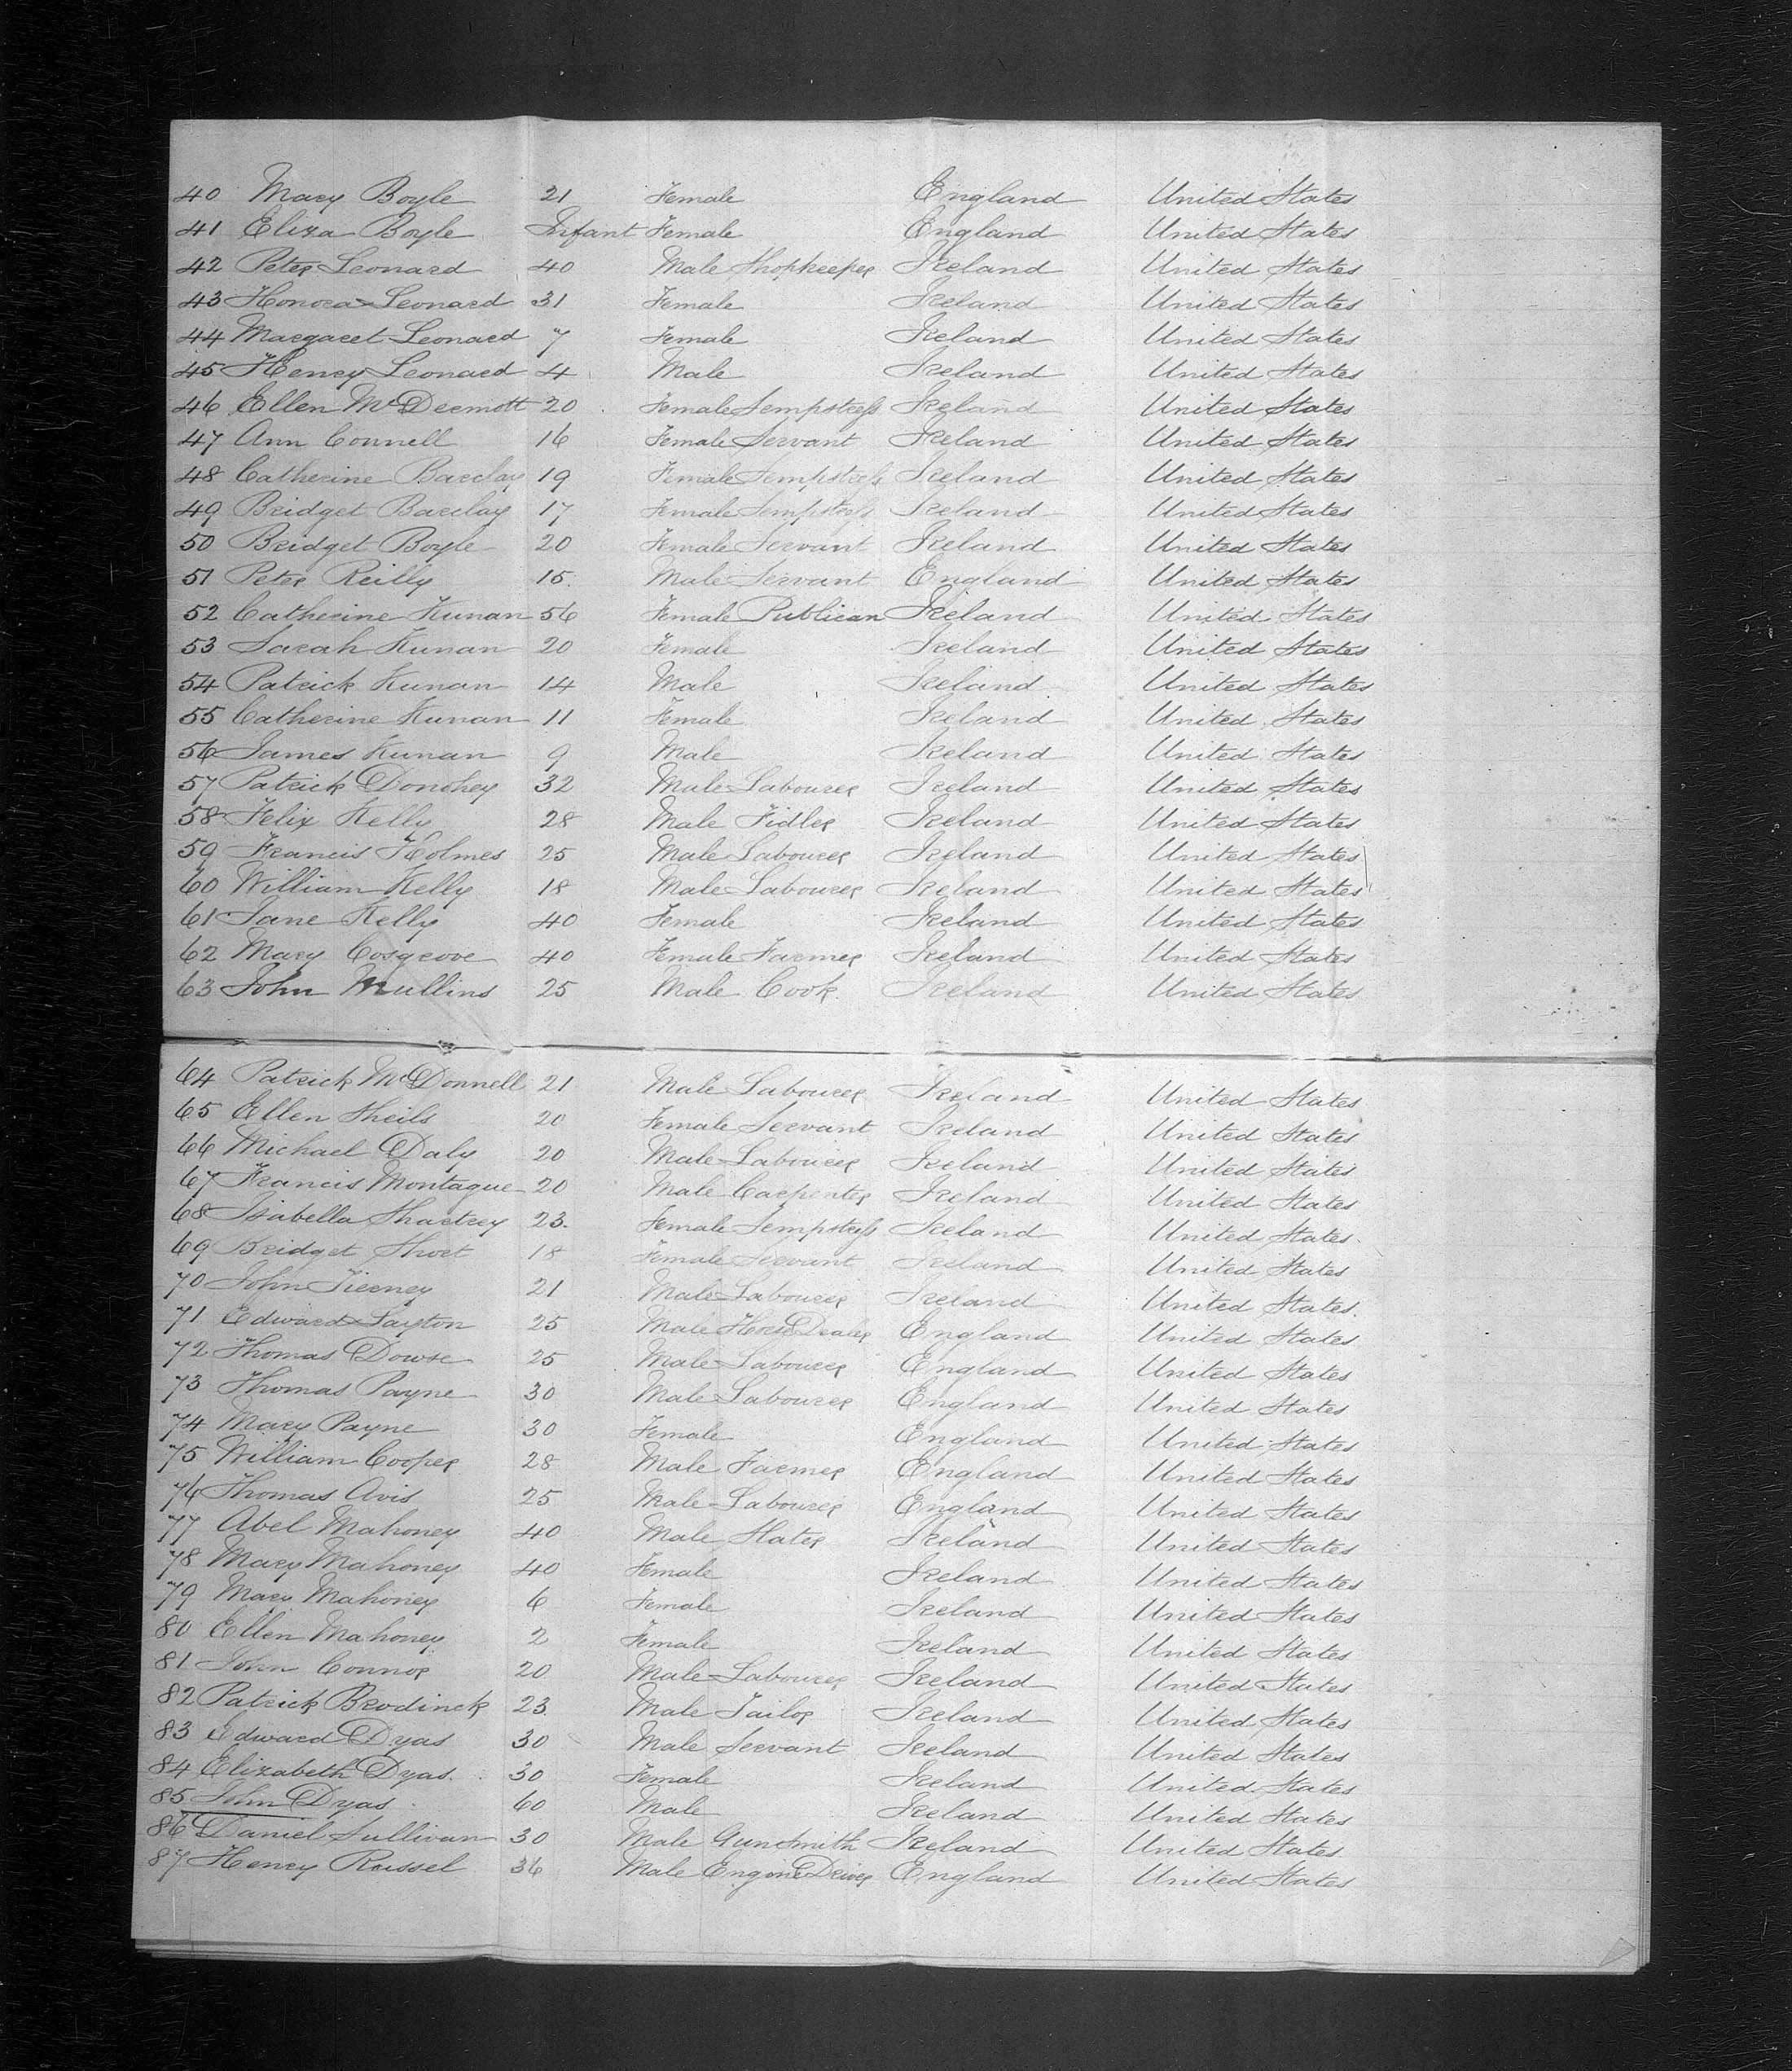 40 Mary Boyle 21 Female England United States
41 Eliza Boyle Infant Female England United States
42 Peter Leonard 40 Male Shopkeeper Ireland United States
43 Honora Leonard 31 Female Ireland United States
44 Margaret Leonard 7 Female Ireland United States
45 Henry Leonard 4 Male Ireland United States
46 Ellen McDermott 20 Female Sempstress Ireland United States
47 Ann Connell 16 Female Servant Ireland United States
48 Catherine Barclay 19 Female Sempstress Ireland United States
49 Bridget Barclay 17 Female Sempstress Ireland United States
50 Bridget Boyle 20 Female Servant Ireland United States
51 Peter Reilly 15 Male Servant England United States
52 Catherine Kunan 56 Female Publican Ireland United States
53 Sarah Kunan 20 Female Ireland United States
54 Patrick Kunan 14 Male Ireland United States
55 Catherine Kunan 11 Female Ireland United States
56 James Kunan 9 Male Ireland United States
57 Patrick Donohey 32 Male Labourer Ireland United States
58 Felix Kelly 28 Male Fidler Ireland United States
59 Francis Holmes 25 Male Labourer Ireland United States
60 William Kelly 18 Male Labourer Ireland United States
61 Jane Kelly 40 Female Ireland United States
62 Mary Cosgrove 40 Female Farmer Ireland United States
63 John Mullins 25 Male Cook Ireland United States
64 Patrick McDonnell 21 Male Labourer Ireland United States
65 Ellen Sheils 20 Female Servant Ireland United States
66 Michael Daly 20 Male Labourer Ireland United States
67 Francis Montague 20 Male Carpenter Ireland United States
68 Isabella Shartrey 23 Female Sempstress Ireland United States
69 Bridget Short 18 Female Servant Ireland United States
70 John Tierney 21 Male Labourer Ireland United States
71 Edward Layton 25 Male Horse Dealer England United States
72 Thomas Dowse 25 Male Labourer England United States
73 Thomas Payne 30 Male Labourer England United States
74 Mary Payne 30 Female England United States
75 William Cooper 28 Male Farmer England United States
76 Thomas Avis 25 Male Labourer England United States
77 Abel Mahoney 40 Male Slater Ireland United States
78 Mary Mahoney 40 Female Ireland United States
79 Mary Mahoney 6 Female Ireland United States
80 Ellen Mahoney 2 Female Ireland United States
81 John Connor 20 Male Labourer Ireland United States
82 Patrick Brodinck 23 Male Tailor Ireland United States
83 Edward Dyas 30 Male Servant Ireland United States
84 Elizabeth Dyas 30 Female Ireland United States
85 John Dyas 60 Male Ireland United States
86 Daniel Sullivan 30 Male GunSmith Ireland United States
87 Henry Russel 36 Male Engine Driver England United States